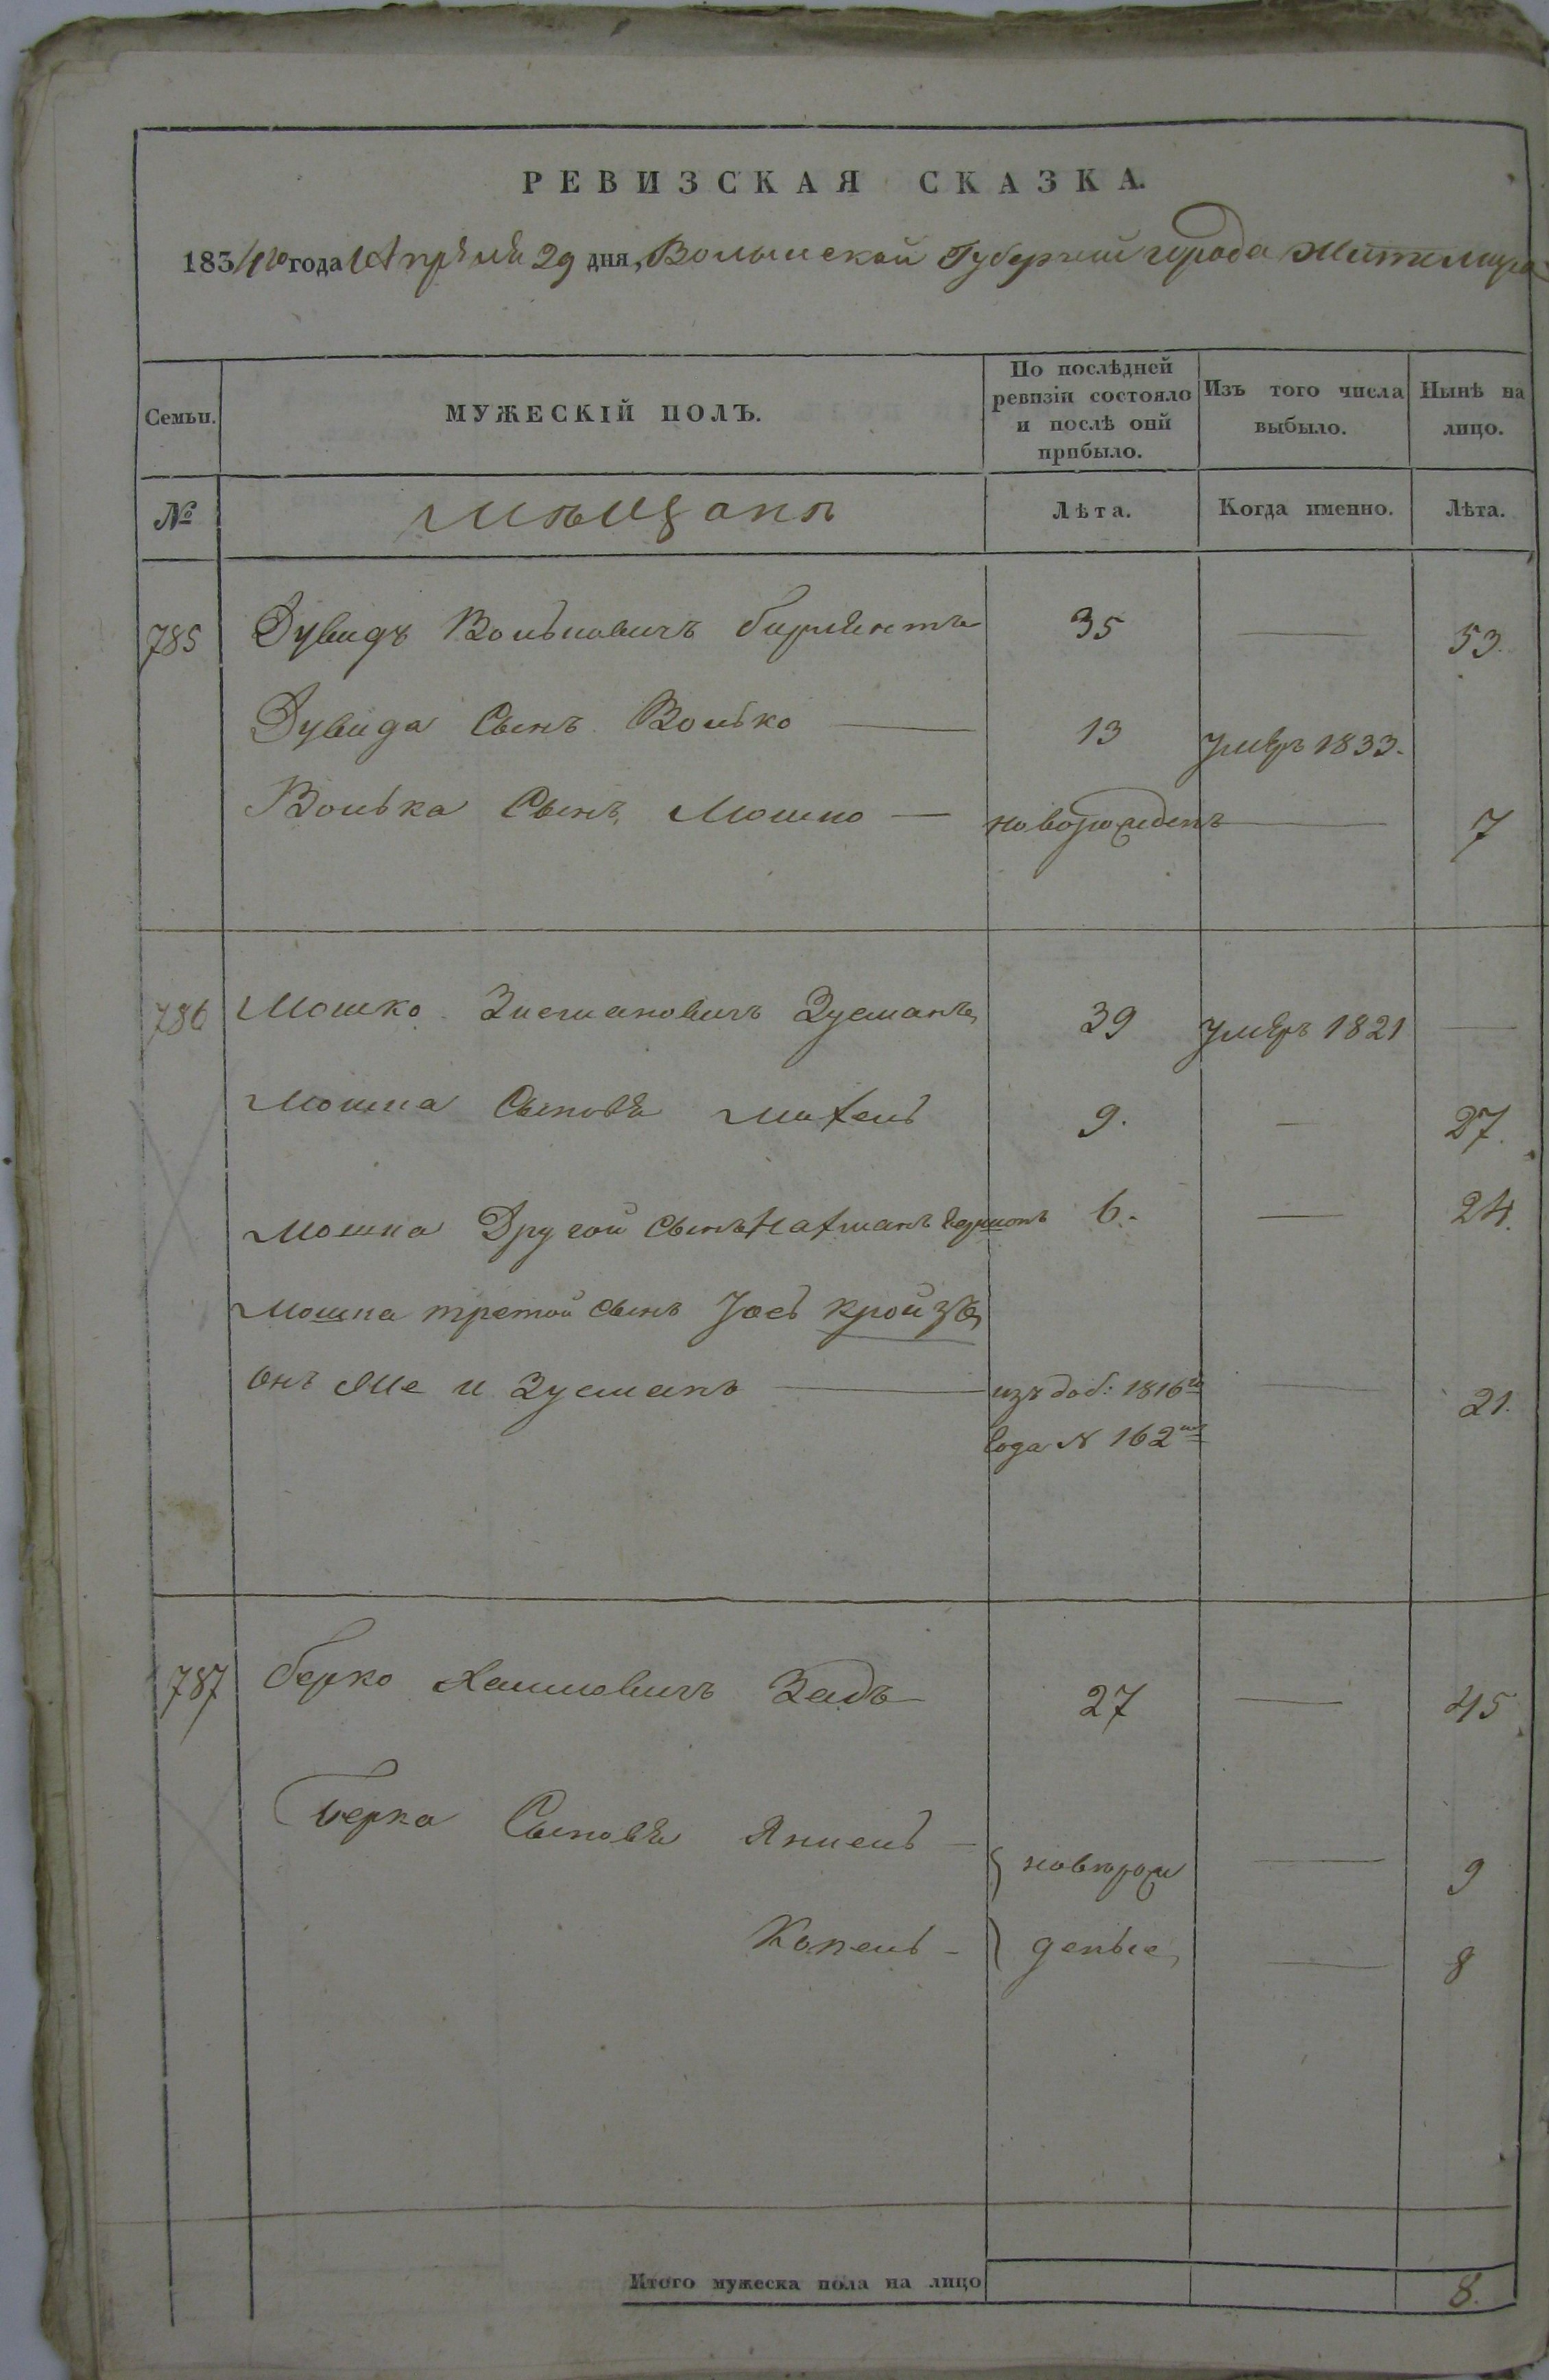 РЕВИЗСКАЯ СКАЗКА.
1834го года Апреля 29 дня, Волынской Губернии города Житомира
Семьи.
МУЖЕСКІЙ ПОЛЪ.
По послѣдней ревизіи состояло и послѣ оной прибыло.
Изъ того числа выбыло.
Нынѣ на лицо.
№
мѣщанъ
Лѣта.
Когда именно.
Лѣта.
785 Дувидъ Вольковичъ 35 — 53.
Дувида Сынъ Волько — 13 умеръ 1833.
Волька Сынъ Мошко — новорожденъ — 7
786 Мошко Зисмановичъ Зусманъ 39 умеръ 1821 —
Мошка Сыновя Михель 9. — 27.
Мошка Другой Сынъ Нахманъ 6. — 24.
Мошка третой Сынъ Іось Кройзъ
онъ же и Зусманъ — изъ доб: 1816го — 21.
года N 162
787 Берко Хаимовичъ Задъ 27 — 45
Берка Сыновя Янкель — новорож — 9
Копель - деные — 8
Итого мужеска пола на лицо 8.